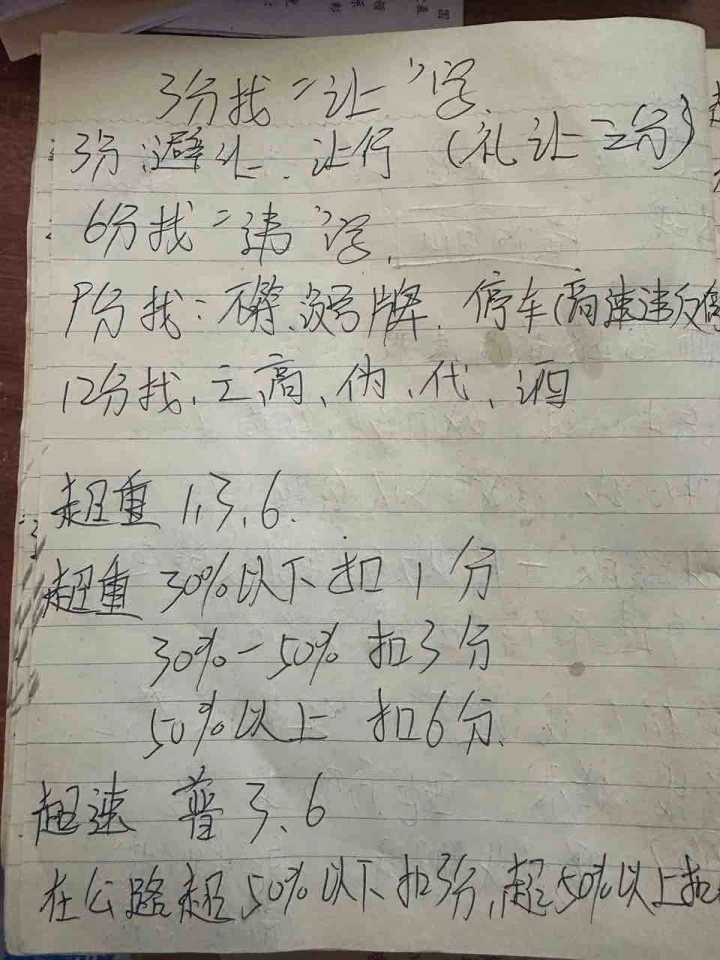 3分找"让"字.
3分:避让.让行(礼让三分)
6分找"违"字.
9分找:不符、没号牌.停车(高速违反
12分找、三、高、伪、代、酒
超重1,3,6.
超重30%以下扣1分
30%-50%扣3分
50%以上扣6分.
超速 普3、6
在公路超50%以下扣3分,超50%以上扣